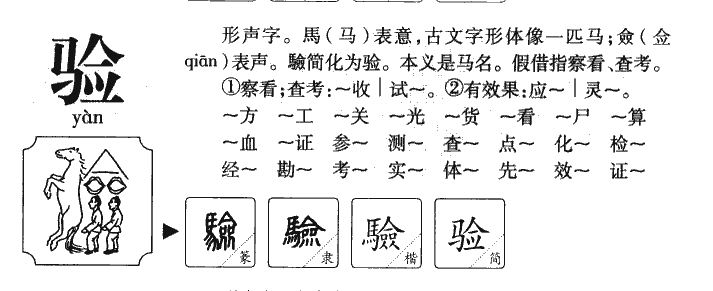 验
yàn
形声字。馬（马）表意，古文字形体像一匹马；僉（佥
qiān）表声。驗简化为验。本义是马名。假借指察看、查考。
①察看；查考：～收｜试～。②有效果：应～｜灵～。
～方 ～工 ～关 ～光 ～货 ～看 ～尸 ～算
～血 ～证 参～ 测～ 查～ 点～ 化～ 检～
经～ 勘～ 考～ 实～ 体～ 先～ 效～ 证～
驗 篆
驗 隶
驗 楷
验 简